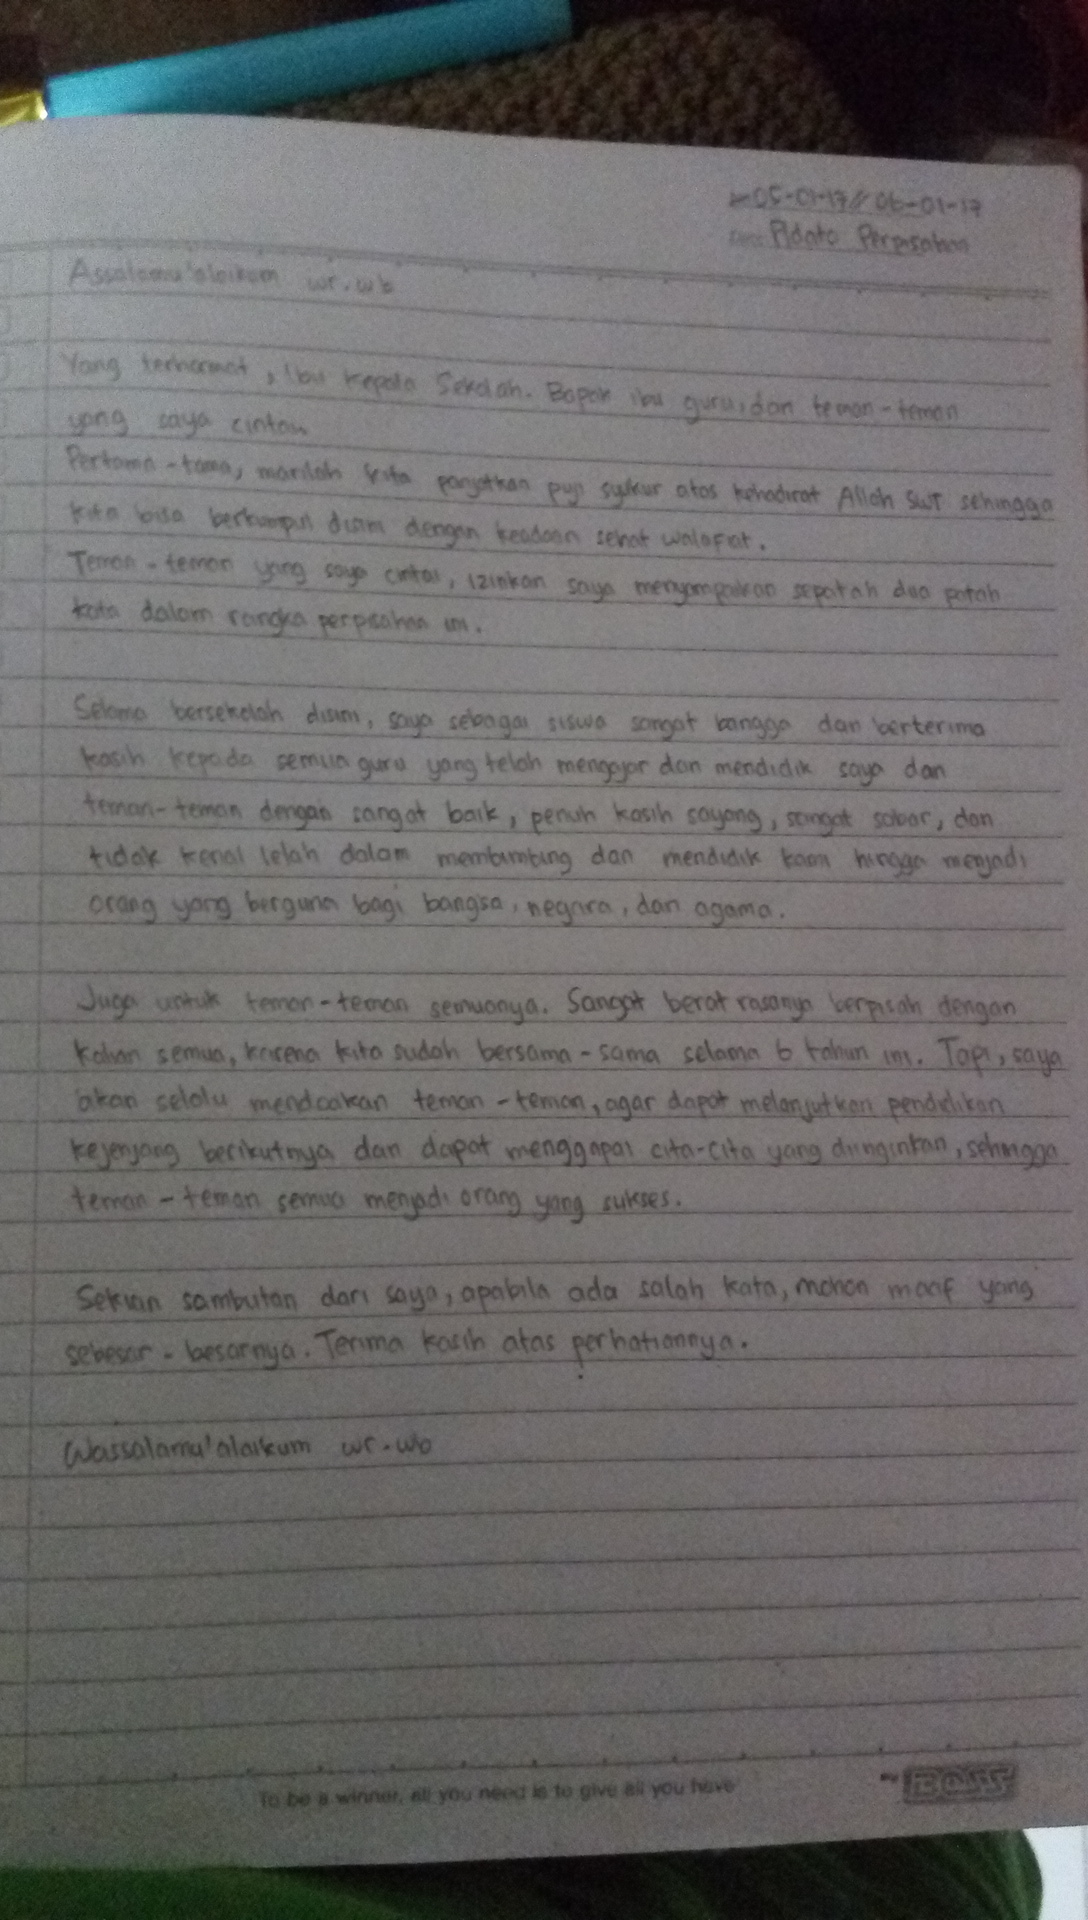 05-01-17 // 06-01-17
Pidato Perpisahan
Assalamu'alaikum wr.wb
Yang terhormat, Ibu Kepala Sekolah. Bapak ibu guru, dan teman-teman
yang saya cintai
Pertama-tama, marilah kita panjatkan puji syukur atas kehadirat Allah SWT sehingga
kita bisa berkumpul disini dengan keadaan sehat walafiat.
Teman-teman yang saya cintai, izinkan saya menyampaikan sepatah dua patah
kata dalam rangka perpisahan ini.
Selama bersekolah disini, saya sebagai siswa sangat bangga dan berterima
kasih kepada semua guru yang telah mengajar dan mendidik saya dan
teman-teman dengan sangat baik, penuh kasih sayang, sangat sabar, dan
tidak kenal lelah dalam membimbing dan mendidik kami hingga menjadi
orang yang berguna bagi bangsa, negara, dan agama.
Juga untuk teman-teman semuanya. Sangat berat rasanya berpisah dengan
kalian semua, karena kita sudah bersama-sama selama 6 tahun ini. Tapi, saya
akan selalu mendoakan teman-teman, agar dapat melanjutkan pendidikan
kejenjang berikutnya dan dapat menggapai cita-cita yang diinginkan, sehingga
teman-teman semua menjadi orang yang sukses.
Sekian sambutan dari saya, apabila ada salah kata, mohon maaf yang
sebesar-besarnya. Terima kasih atas perhatiannya.
Wassalamu'alaikum wr.wb
To be a winner, all you need is to give all you have
BOSS